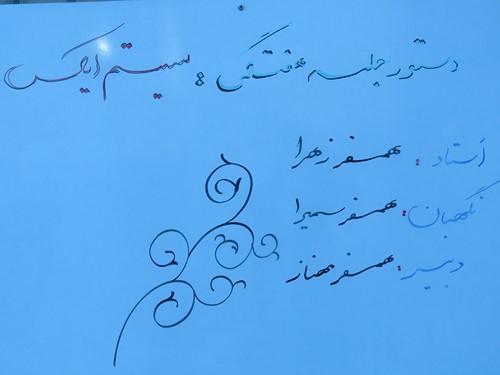 دستور جلسه هفتگی : سیستم ایکس
استاد : همسفر زهرا
نگهبان : همسفر سمیرا
دبیر : همسفر مهناز